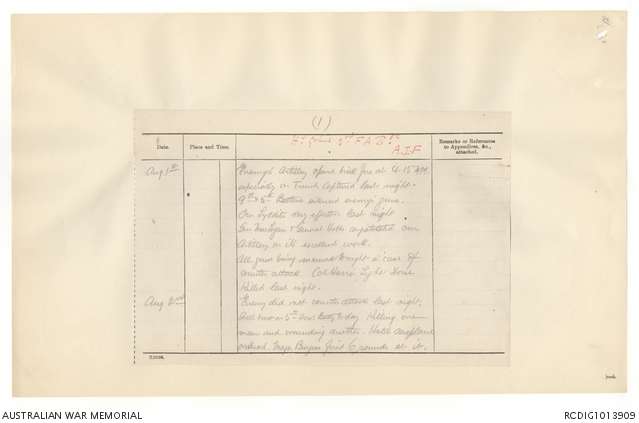 (1)
F.A.B.
A.I.F
Date.
Place and Time.
Remarks or References
to Appendices, &c.,
attached.
Aug 1st
Enemy's Artillery opened brisk fire at 4.15 AM
especially on Trench captured last night.
9th & 5th Batteries enemys guns.
Our Lyddite very effective last night
Gen & General Hobbs congratulated our
Artillery on its excellent work.
All guns being manned tonight in case of
counter attack. Col Light Horse
killed last night.
Aug 2nd
Enemy did not counter attack last night,
on 5th How. Batty today killing one
man and wounding another. Hostile aeroplane
Major fired 6 rounds at it.
AUSTRALIAN WAR MEMORIAL
RCDIG1013909